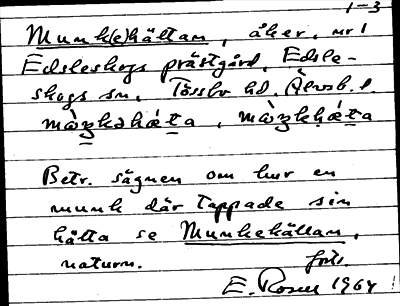 1-3
Munk(e)hättan, åker, nr 1
Edsleskogs prästgård, Edsle-
skogs sn, Tössbo hd. Älvsb. l.
Betr. sägnen om hur en
munk där tappade sin
hätta se Munkekällan,
naturn. forts.
E. Rosell 1964